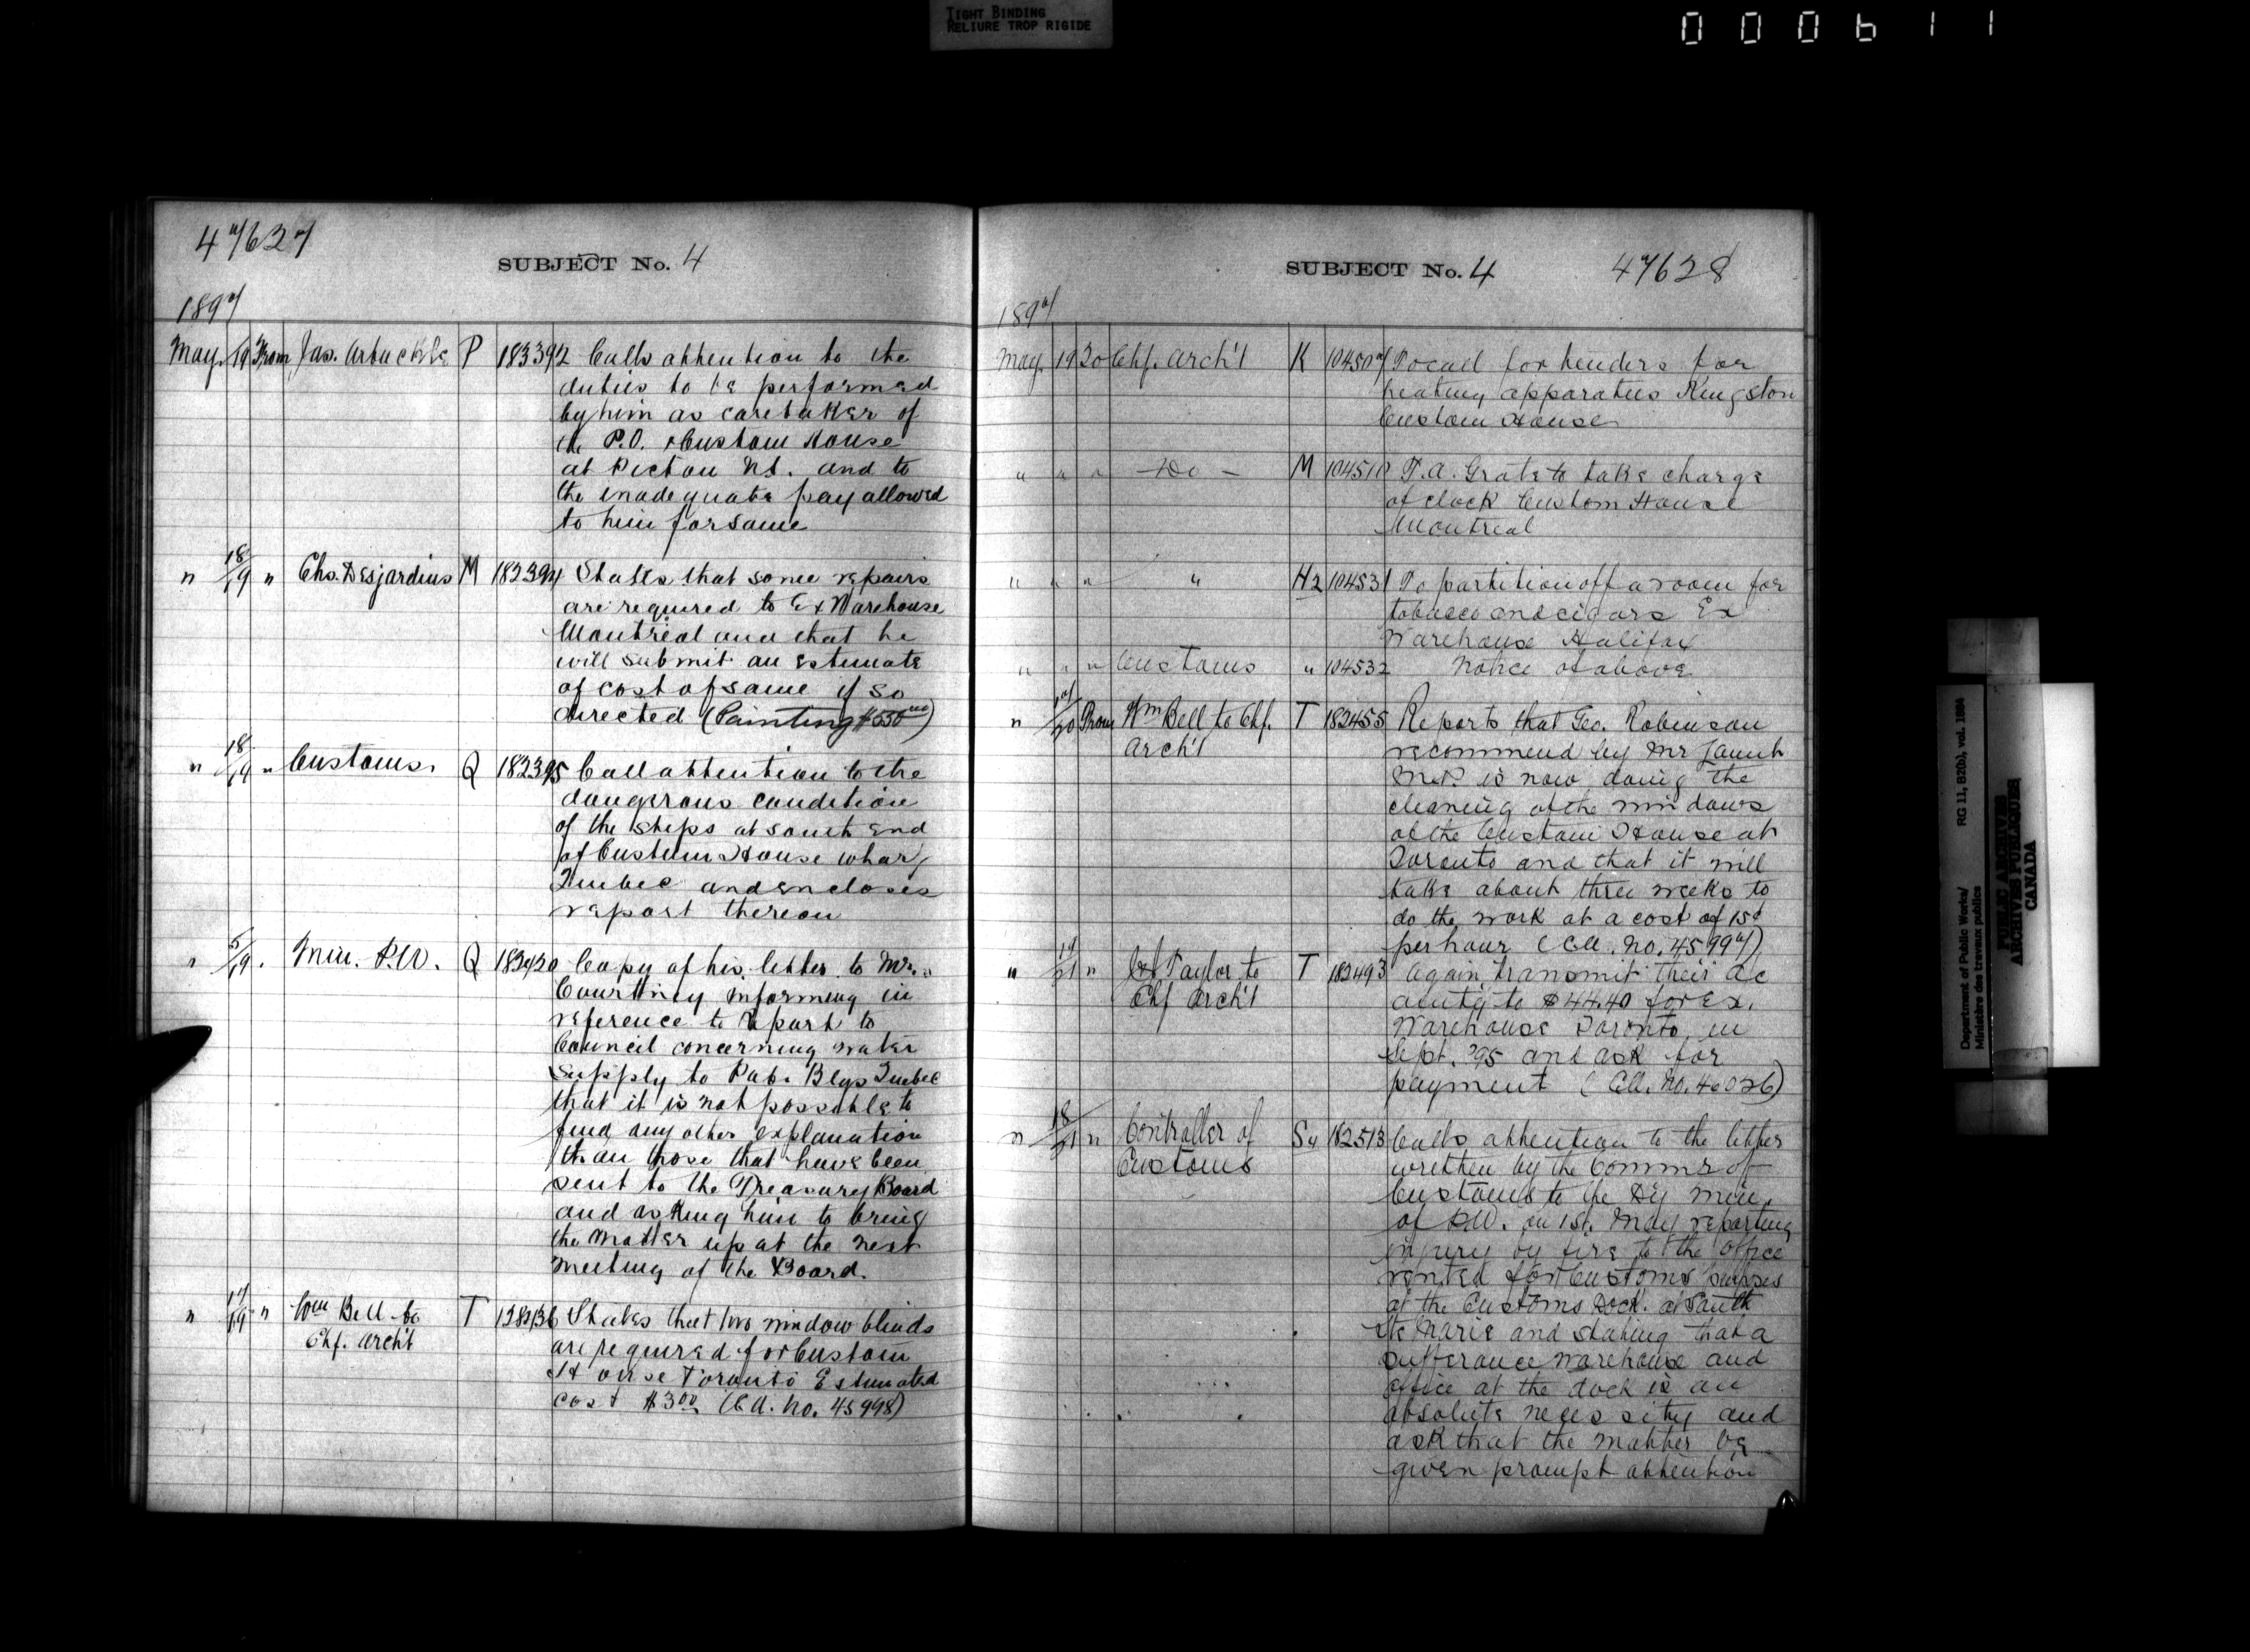 TIGHT BINDING
RELIURE TROP RIGIDE
000611
47627
SUBJECT No. 4
1897
May 19 From Jas. Arbuckle P 183392 Calls attention to the
duties to be performed
by him as caretaker of
the P.O. & Custom House
at Pictou N.S. and to
the inadequate pay allowed
to him for same
" 18/19 " Chs. Desjardins M 182394 States that some repairs
are required to Ex Warehouse
Montreal and that he
will submit an estimate
of cost of same if so
directed (Painting $550.00)
" 18/19 " Customs. Q 182395 Call attention to the
dangerous condition
of the steps at south end
of Custom House wharf
Quebec and encloses
report thereon
" 5/19 . Min. P.W. Q 182420 Copy of his letter to Mr.
Courtney informing in
reference to Report to
Council concerning water
supply to Pub. Blgs Quebec
that it is not possible to
find any other explanation
than those that have been
sent to the Treasury Board
and asking him to bring
the matter up at the next
meeting of the Board.
" 17/19 " Wm Bell to T 182436 States that two window blinds
Chf. Arch't
are required for Custom
House Toronto Estimated
cost $3.00 (C.A. No. 45998)
SUBJECT No. 4
47628
1897
May 19 20 Chf. Arch't K 104507 To call for tenders for
heating apparatus Kingston
Custom House
" " " - Do - M 104510 T.A. Grate to take charge
of clock Custom House
Montreal
" " " " H2 104531 To partition off a room for
tobacco and cigars Ex
Warehouse Halifax
" " " Customs " 104532 Notice of above
" 17/20 From Wm Bell to Chf. T 182455 Reports that Geo. Robinson
Arch't
recommend by Mr
M.P. is now doing the
cleaning of the windows
of the Custom House at
Toronto and that it will
take about three weeks to
do the work at a cost of 15¢
per hour (C.A. No. 45997)
" 19/21 " Taylor to T 182493 Again transmit their ac
Chf Arch't
amtg to $44.40 for Ex.
Warehouse Toronto in
Sept. '95 and ask for
payment (C.A. No. 46026)
" 18/21 " Controller of 182513 Calls attention to the letter
Customs
written by the Commr of
Customs to the Dy Min.
of P.W. on 1st. May reporting
injury by fire to the office
rented for Customs purposes
at the Customs Dock. at Sault
Ste Marie and stating that a
sufferance warehouse and
office at the dock is an
absolute necessity and
ask that the matter be
given prompt attention
Department of Public Works/
Ministère des travaux publics
RG 11, B2(b), vol. 1684
PUBLIC ARCHIVES
ARCHIVES PUBLIQUES
CANADA